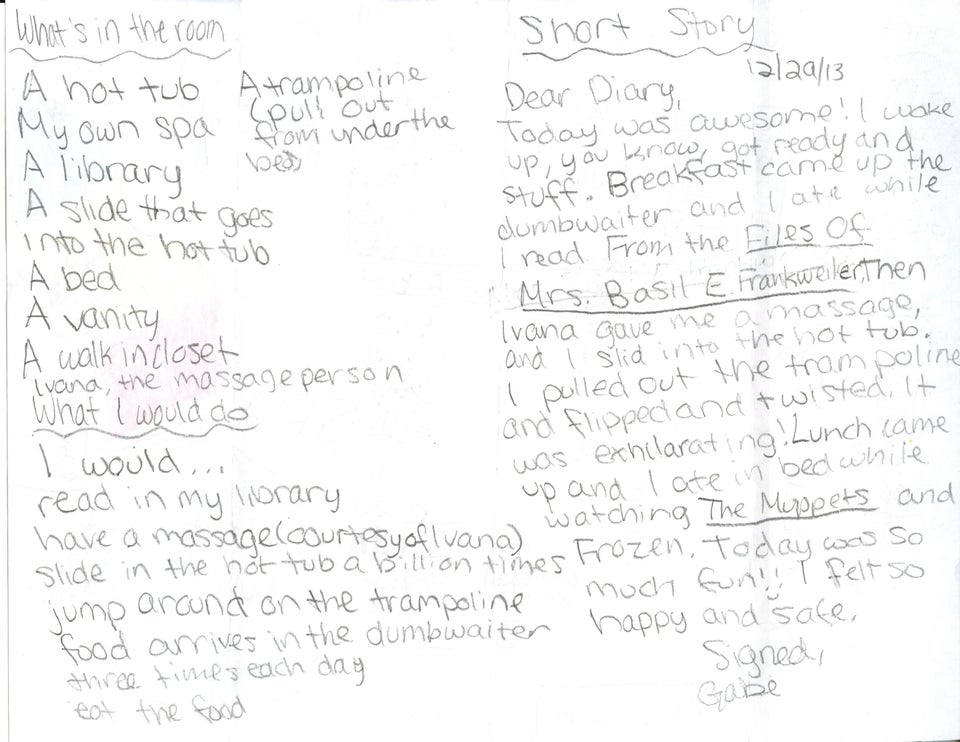 What's in the room
A hot tub
My own spa
A library
A slide that goes
into the hot tub
A bed
A vanity
A walk in closet
Ivana, the massage person
A trampoline
(pull out
from under the
bed)
What I would do
I would...
read in my library
have a massage (courtesy of Ivana)
slide in the hot tub a billion times
jump around on the trampoline
food arrives in the dumbwaiter
three times each day
eat the food
Short Story
12/29/13
Dear Diary,
Today was awesome! I woke
up, you know, got ready and
stuff. Breakfast came up the
dumbwaiter and I ate while
I read From the Files Of
Mrs. Basil E. Frankweiler, Then
Ivana gave me a massage,
and I slid into the hot tub.
I pulled out the trampoline
and flipped and twisted. It
was exhilarating! Lunch came
up and I ate in bed while
watching The Muppets and
Frozen. Today was so
much fun!! I felt so
happy and safe.
Signed,
Gabe